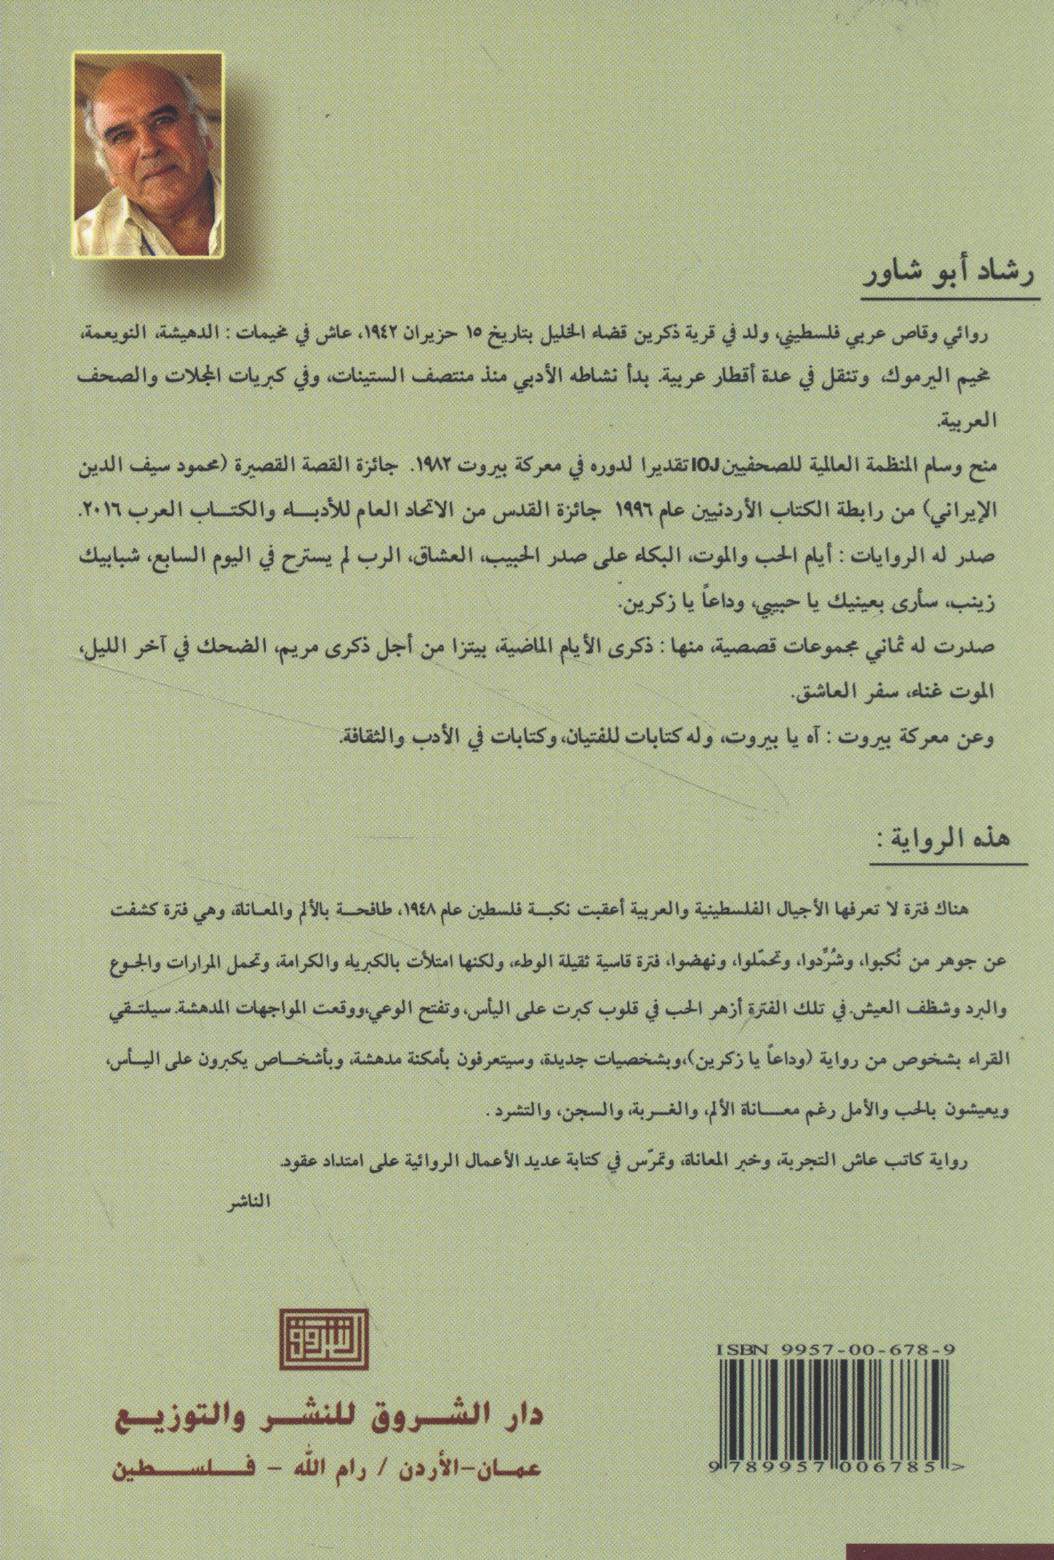 رشاد أبو شاور
روائي وقاص عربي فلسطيني، ولد في قرية ذكرين قضاء الخليل بتاريخ ١٥ حزيران ١٩٤٢، عاش في مخيمات : الدهيشة، النويعمة،
مخيم اليرموك، وتنقل في عدة أقطار عربية. بدأ نشاطه الأدبي منذ منتصف الستينات، وفي كبريات المجلات والصحف
العربية.
منح وسام المنظمة العالمية للصحفيين IOJ تقديرا لدوره في معركة بيروت ١٩٨٢. جائزة القصة القصيرة (محمود سيف الدين
الإيراني) من رابطة الكتاب الأردنيين عام ١٩٩٦ جائزة القدس من الاتحاد العام للأدباء والكتاب العرب ٢٠١٦.
صدر له الروايات : أيام الحب والموت، البكاء على صدر الحبيب، العشاق، الرب لم يسترح في اليوم السابع، شبابيك
زينب، سأرى بعينيك يا حبيبي، وداعاً يا زكرين.
صدرت له ثماني مجموعات قصصية، منها : ذكرى الأيام الماضية، بيتزا من أجل ذكرى مريم، الضحك في آخر الليل،
الموت غناء، سفر العاشق.
وعن معركة بيروت : آه يا بيروت، وله كتابات للفتيان، وكتابات في الأدب والثقافة.
هذه الرواية :
هناك فترة لا تعرفها الأجيال الفلسطينية والعربية أعقبت نكبة فلسطين عام ١٩٤٨، طافحة بالألم والمعاناة، وهي فترة كشفت
عن جوهر من نُكبوا، وشُرِّدوا، وتحمّلوا، ونهضوا، فترة قاسية ثقيلة الوطء، ولكنها امتلأت بالكبرياء والكرامة، وتحمل المرارات والجوع
والبرد وشظف العيش. في تلك الفترة أزهر الحب في قلوب كبرت على اليأس، وتفتح الوعي، ووقعت المواجهات المدهشة. سيلتقي
القراء بشخوص من رواية (وداعاً يا زكرين)، وبشخصيات جديدة، وسيتعرفون بأمكنة مدهشة، وبأشخاص يكبرون على اليأس،
ويعيشون بالحب والأمل رغم معاناة الألم، والغربة، والسجن، والتشرد .
رواية كاتب عاش التجربة، وخبر المعاناة، وتمرّس في كتابة عديد الأعمال الروائية على امتداد عقود.
الناشر
الشروق
دار الشروق للنشر والتوزيع
عمان-الأردن / رام الله - فلسطين
ISBN 9957-00-678-9
9 789957 006785 >